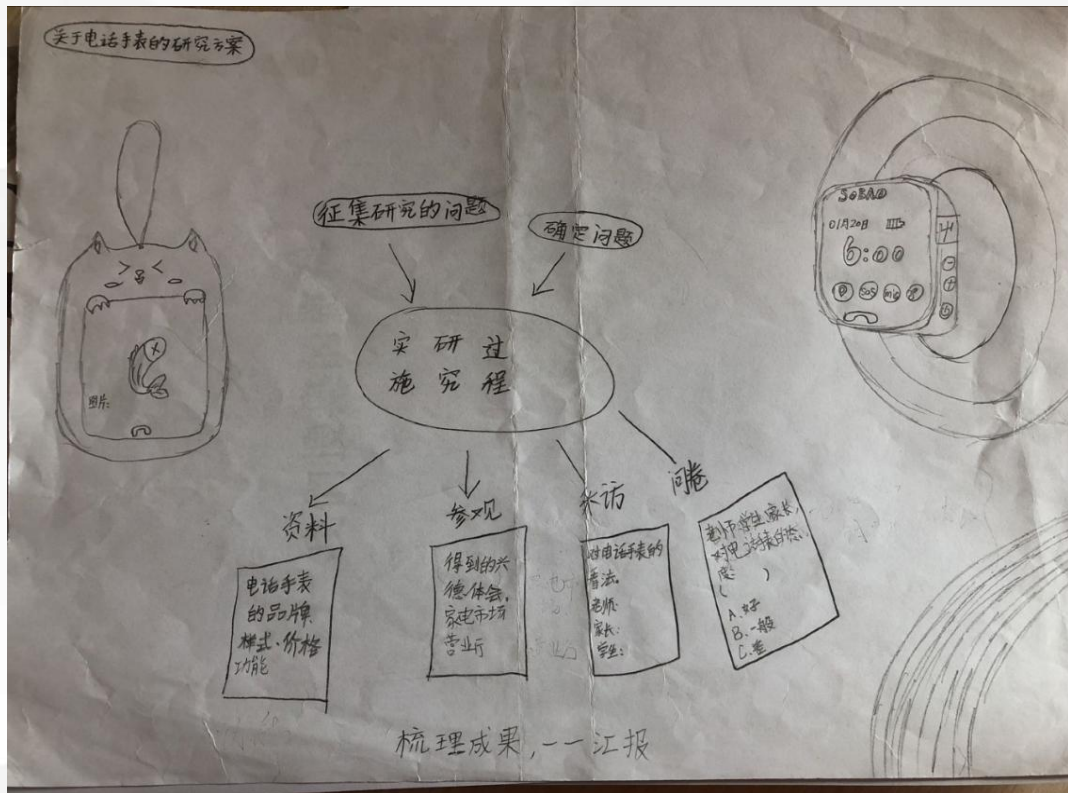 关于电话手表的研究方案
征集研究的问题
确定问题
SOBAD
01月20日
6:00
SOS
mic
实 研 过
施 究 程
照片:
资料
电话手表
的品牌
样式·价格
功能
参观
得到的兴
德·体会,
家电市场
营业厅
采访
对电话手表的
看法。
老师:
家长:
学生:
问卷
老师·学生家长,
对电话手表的态
度:
( )
A.好
B.一般
C.差
梳理成果,一一汇报